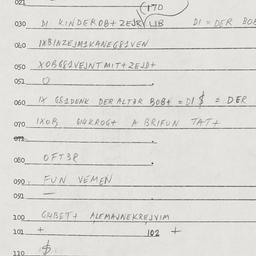 021
170
030 DI KINDEROB+ ZEJR LIB DI = DER BOB
040 IXBINZEJMIKANEG81VEN
050 XOBG81VEJNTMIT+ZEJD+
051 O
060 IX G81DENK DER ALTAR BOB+ = DI $ = DER
070 IXOB A BRIFUN TAT+
071
080 OFT3R
090 FUN VEMEN
091 —
100 G4BET+ ALEMAJNEKREJVIM
101 + 102 +
110 $